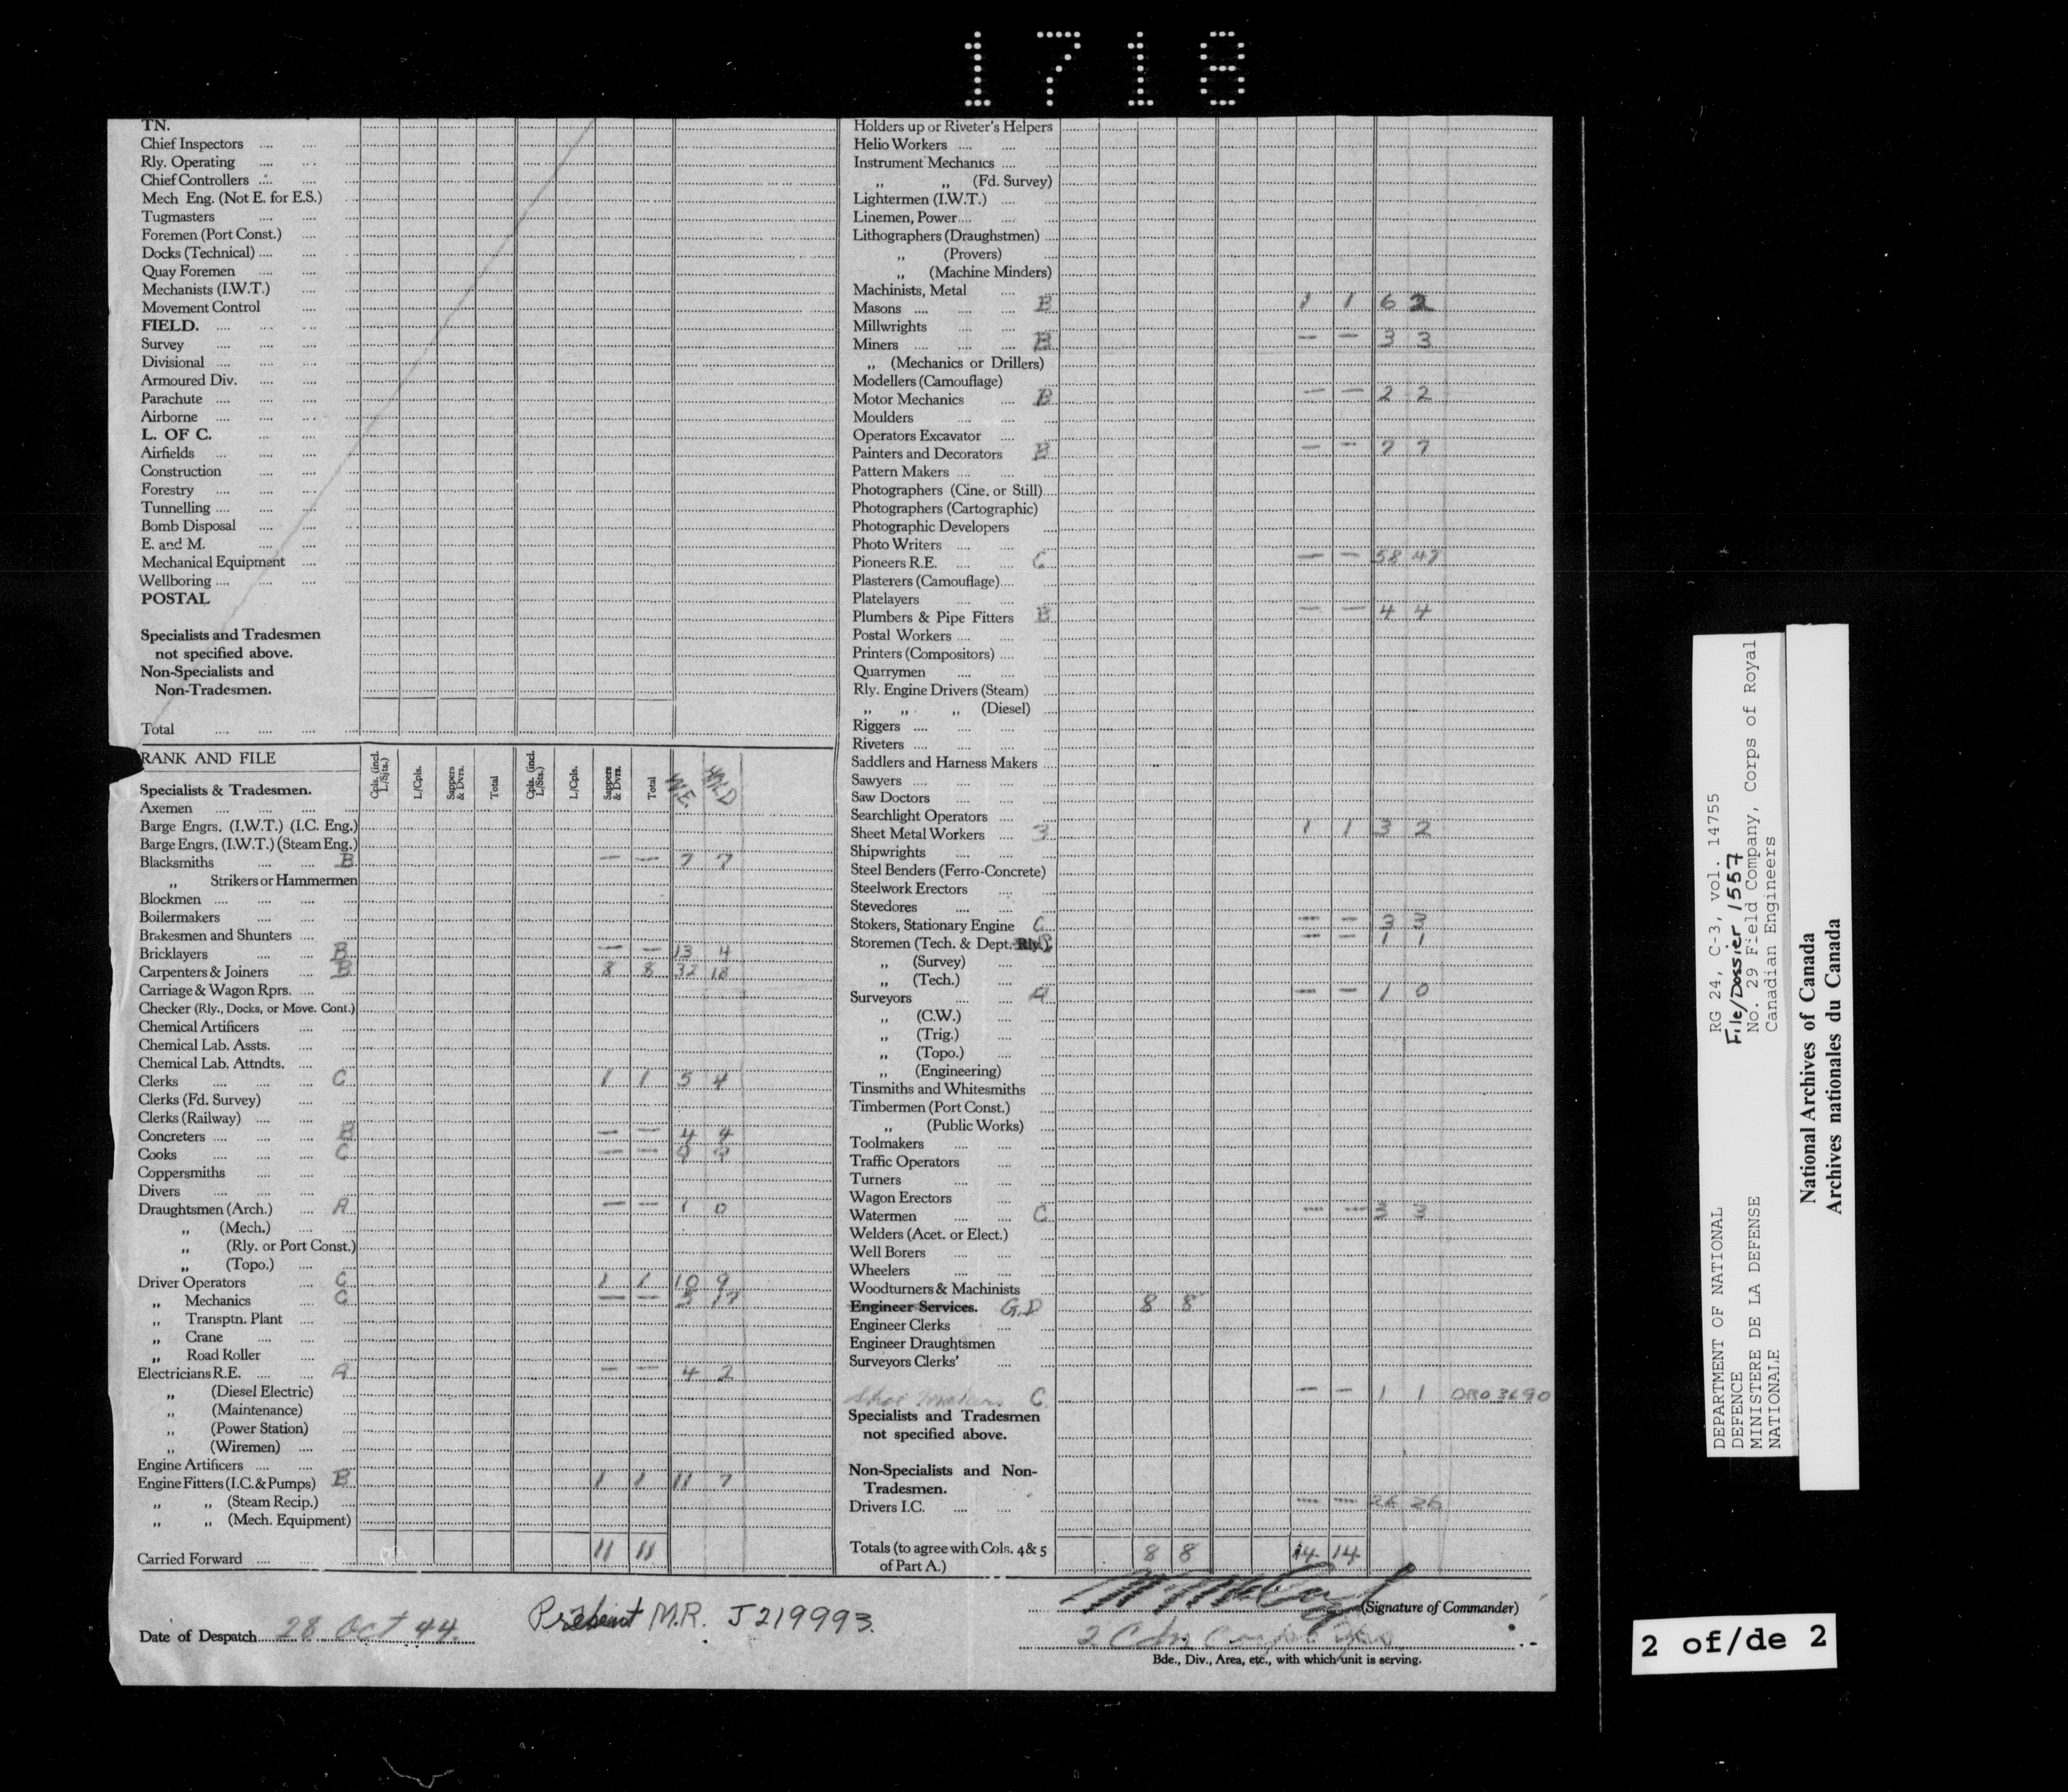 1718
TN.
Chief Inspectors
Rly. Operating
Chief Controllers
Mech Eng. (Not E. for E.S.)
Tugmasters
Foremen (Port Const.)
Docks (Technical)
Quay Foremen
Mechanists (I.W.T.)
Movement Control
FIELD.
Survey
Divisional
Armoured Div.
Parachute
Airborne
L. OF C.
Airfields
Construction
Forestry
Tunnelling
Bomb Disposal
E. and M.
Mechanical Equipment
Wellboring
POSTAL
Specialists and Tradesmen
not specified above.
Non-Specialists and
Non-Tradesmen.
Total
RANK AND FILE Cpls. (incl. L/Sjts.) L/Cpls. Sappers & Dvrs. Total Cpls. (incl. L/Sts.) L/Cpls. Sappers & Dvrs. Total W.E. HELD
Specialists & Tradesmen.
Axemen
Barge Engrs. (I.W.T.) (I.C. Eng.)
Barge Engrs. (I.W.T.) (Steam Eng.)
Blacksmiths B — — 7 7
„ Strikers or Hammermen
Blockmen
Boilermakers
Brakesmen and Shunters
Bricklayers B — — 13 4
Carpenters & Joiners B 8 8 32 18
Carriage & Wagon Rprs.
Checker (Rly., Docks, or Move. Cont.)
Chemical Artificers
Chemical Lab. Assts.
Chemical Lab. Attndts.
Clerks C 1 1 5 4
Clerks (Fd. Survey)
Clerks (Railway)
Concreters B — — 4 4
Cooks C — —
Coppersmiths
Divers
Draughtsmen (Arch.) A — — 1 0
„ (Mech.)
„ (Rly. or Port Const.)
„ (Topo.)
Driver Operators C 1 1 10 9
„ Mechanics C — —
„ Transptn. Plant
„ Crane
„ Road Roller
Electricians R.E. A — — 4 2
„ (Diesel Electric)
„ (Maintenance)
„ (Power Station)
„ (Wiremen)
Engine Artificers
Engine Fitters (I.C. & Pumps) B 1 1 11 7
„ „ (Steam Recip.)
„ „ (Mech. Equipment)
Carried Forward 11 11
Holders up or Riveter's Helpers
Helio Workers
Instrument Mechanics
„ „ (Fd. Survey)
Lightermen (I.W.T.)
Linemen, Power
Lithographers (Draughstmen)
„ (Provers)
„ (Machine Minders)
Machinists, Metal
Masons B 1 1 6 2
Millwrights
Miners B — — 3 3
„ (Mechanics or Drillers)
Modellers (Camouflage)
Motor Mechanics B — — 2 2
Moulders
Operators Excavator
Painters and Decorators B — — 7 7
Pattern Makers
Photographers (Cine. or Still)
Photographers (Cartographic)
Photographic Developers
Photo Writers
Pioneers R.E. C — — 58 47
Plasterers (Camouflage)
Platelayers
Plumbers & Pipe Fitters B — — 4 4
Postal Workers
Printers (Compositors)
Quarrymen
Rly. Engine Drivers (Steam)
„ „ „ (Diesel)
Riggers
Riveters
Saddlers and Harness Makers
Sawyers
Saw Doctors
Searchlight Operators
Sheet Metal Workers B 1 1 3 2
Shipwrights
Steel Benders (Ferro-Concrete)
Steelwork Erectors
Stevedores
Stokers, Stationary Engine C — — 3 3
Storemen (Tech. & Dept. Rly.) — — 1 1
„ (Survey)
„ (Tech.)
Surveyors A — — 1 0
„ (C.W.)
„ (Trig.)
„ (Topo.)
„ (Engineering)
Tinsmiths and Whitesmiths
Timbermen (Port Const.)
„ (Public Works)
Toolmakers
Traffic Operators
Turners
Wagon Erectors
Watermen C — — 3 3
Welders (Acet. or Elect.)
Well Borers
Wheelers
Woodturners & Machinists
Engineer Services. G.D 8 8
Engineer Clerks
Engineer Draughtsmen
Surveyors Clerks'
Shoe Makers C. — — 1 1 ORO 3690
Specialists and Tradesmen
not specified above.
Non-Specialists and Non-
Tradesmen.
Drivers I.C. — — 26 26
Totals (to agree with Cols. 4 & 5
of Part A.) 8 8 14 14
Date of Despatch 28 Oct 44
Present M.R. J219993.
(Signature of Commander)
2 Cdn Corps
Bde., Div., Area, etc., with which unit is serving.
DEPARTMENT OF NATIONAL
DEFENCE
MINISTERE DE LA DEFENSE
NATIONALE
RG 24, C-3, vol. 14755
File/Dossier 1557
No. 29 Field Company, Corps of Royal
Canadian Engineers
National Archives of Canada
Archives nationales du Canada
2 of/de 2